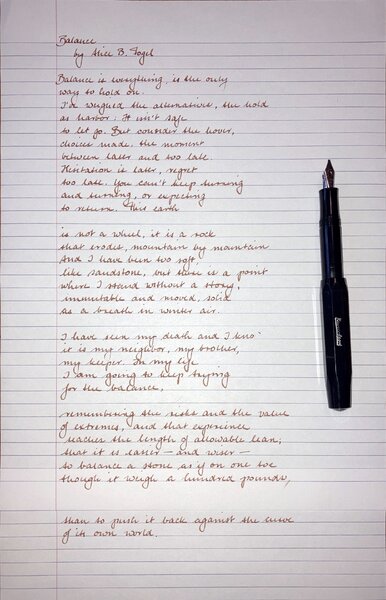 Balance
by Alice B. Fogel
Balance is everything, is the only
way to hold on.
I've weighed the alternatives, the hold
as harbor: It isn't safe
to let go. But consider the hover,
choices made, the moment
between later and too late.
Hesitation is later, regret
too late. You can't keep turning
and turning, or expecting
to return. This earth
is not a wheel, it is a rock
that erodes, mountain by mountain.
And I have been too soft,
like sandstone, but there is a point
where I stand without a story,
immutable and moved, solid
as a breath in winter air.
I have seen my death and I know
it is my neighbor, my brother,
my keeper. In my life
I am going to keep trying
for the balance,
remembering the risks and the value
of extremes, and that experience
teaches the length of allowable lean;
that it is easier – and wiser –
to balance a stone as if on one toe
though it weigh a hundred pounds,
than to push it back against the curve
of its own world.
Kaweco